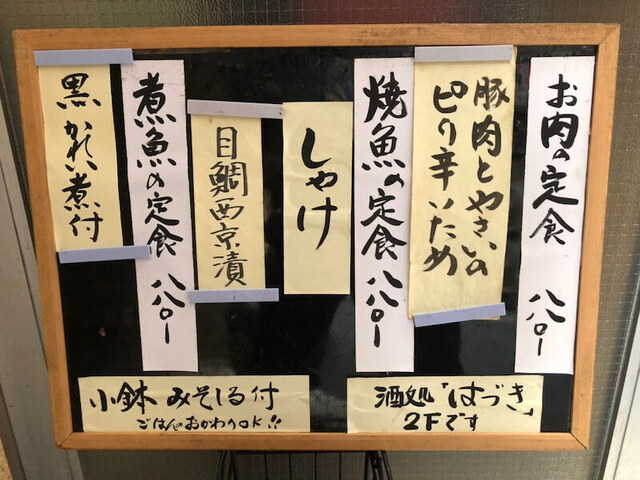 お肉の定食 八八〇ー
豚肉とやさいの
ピリ辛いため
焼魚の定食 八八〇ー
しゃけ
目鯛西京漬
煮魚の定食 八八〇ー
黒かれい煮付
小鉢 みそしる付
ごはんのおかわりOK!!
酒処「はづき」
2Fです